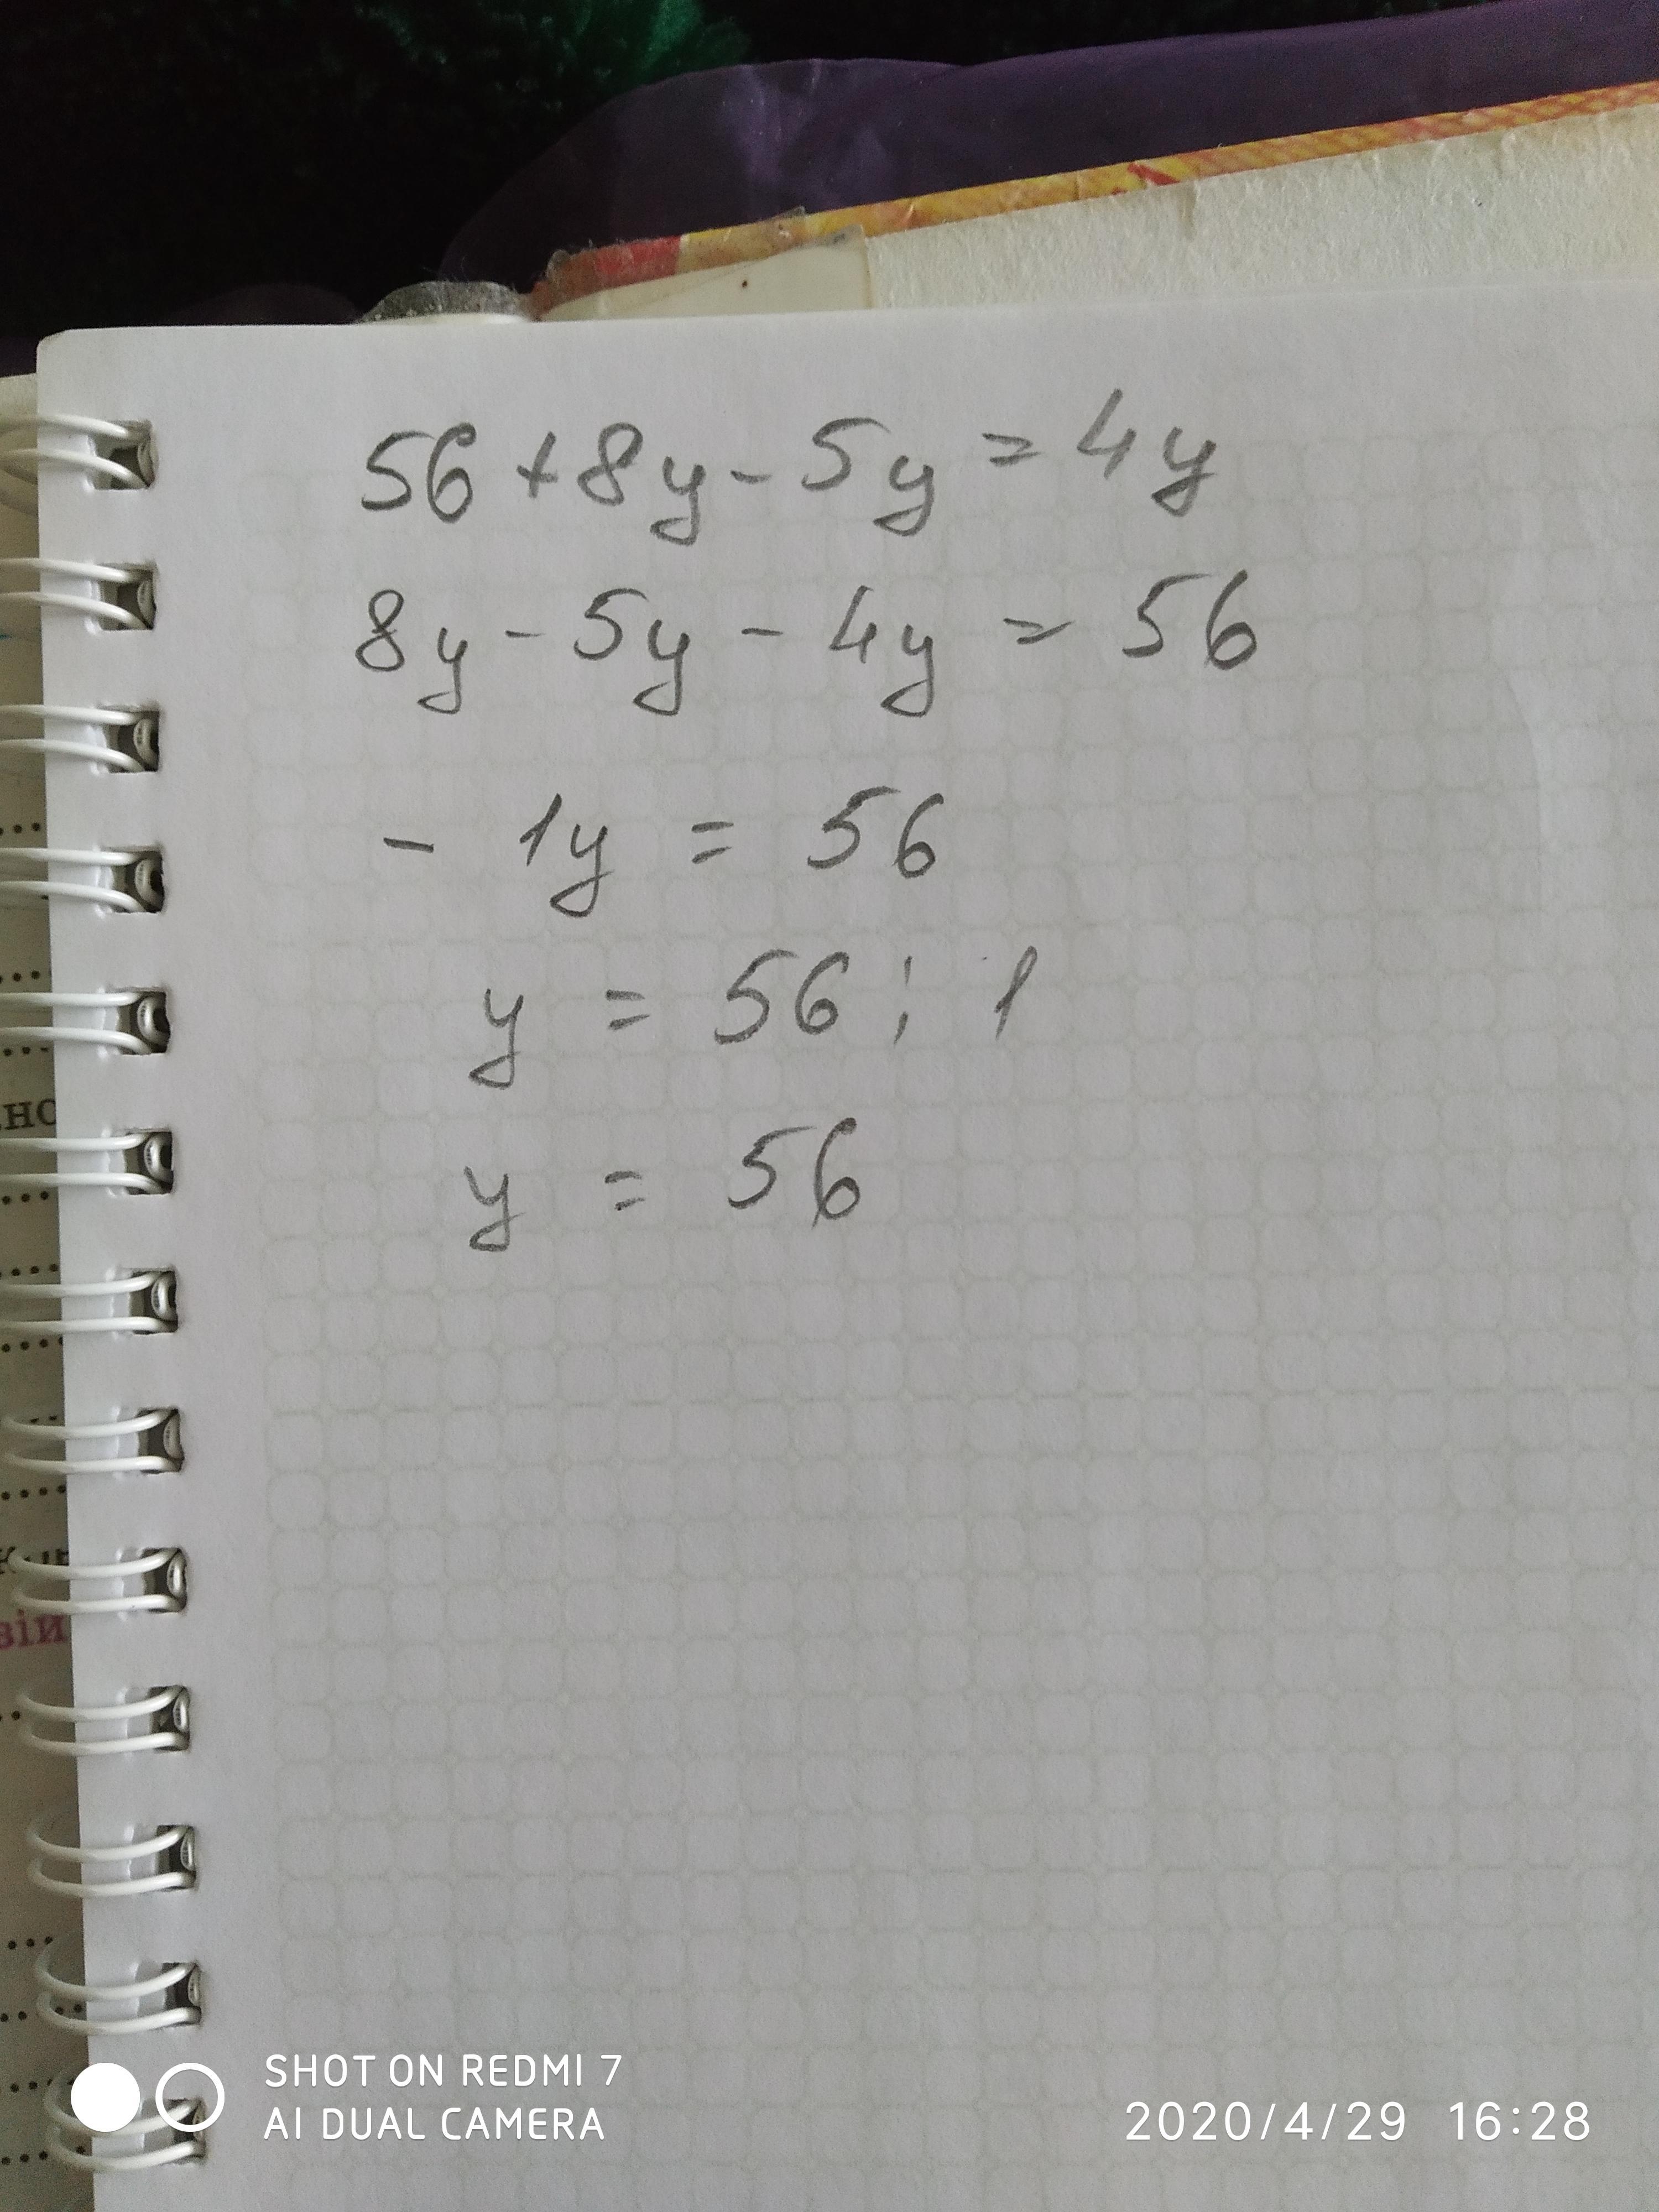 56 + 8y - 5y = 4y
8y - 5y - 4y = 56
- 1y = 56
y = 56 : 1
y = 56
но
зій
SHOT ON REDMI 7
AI DUAL CAMERA
2020/4/29 16:28